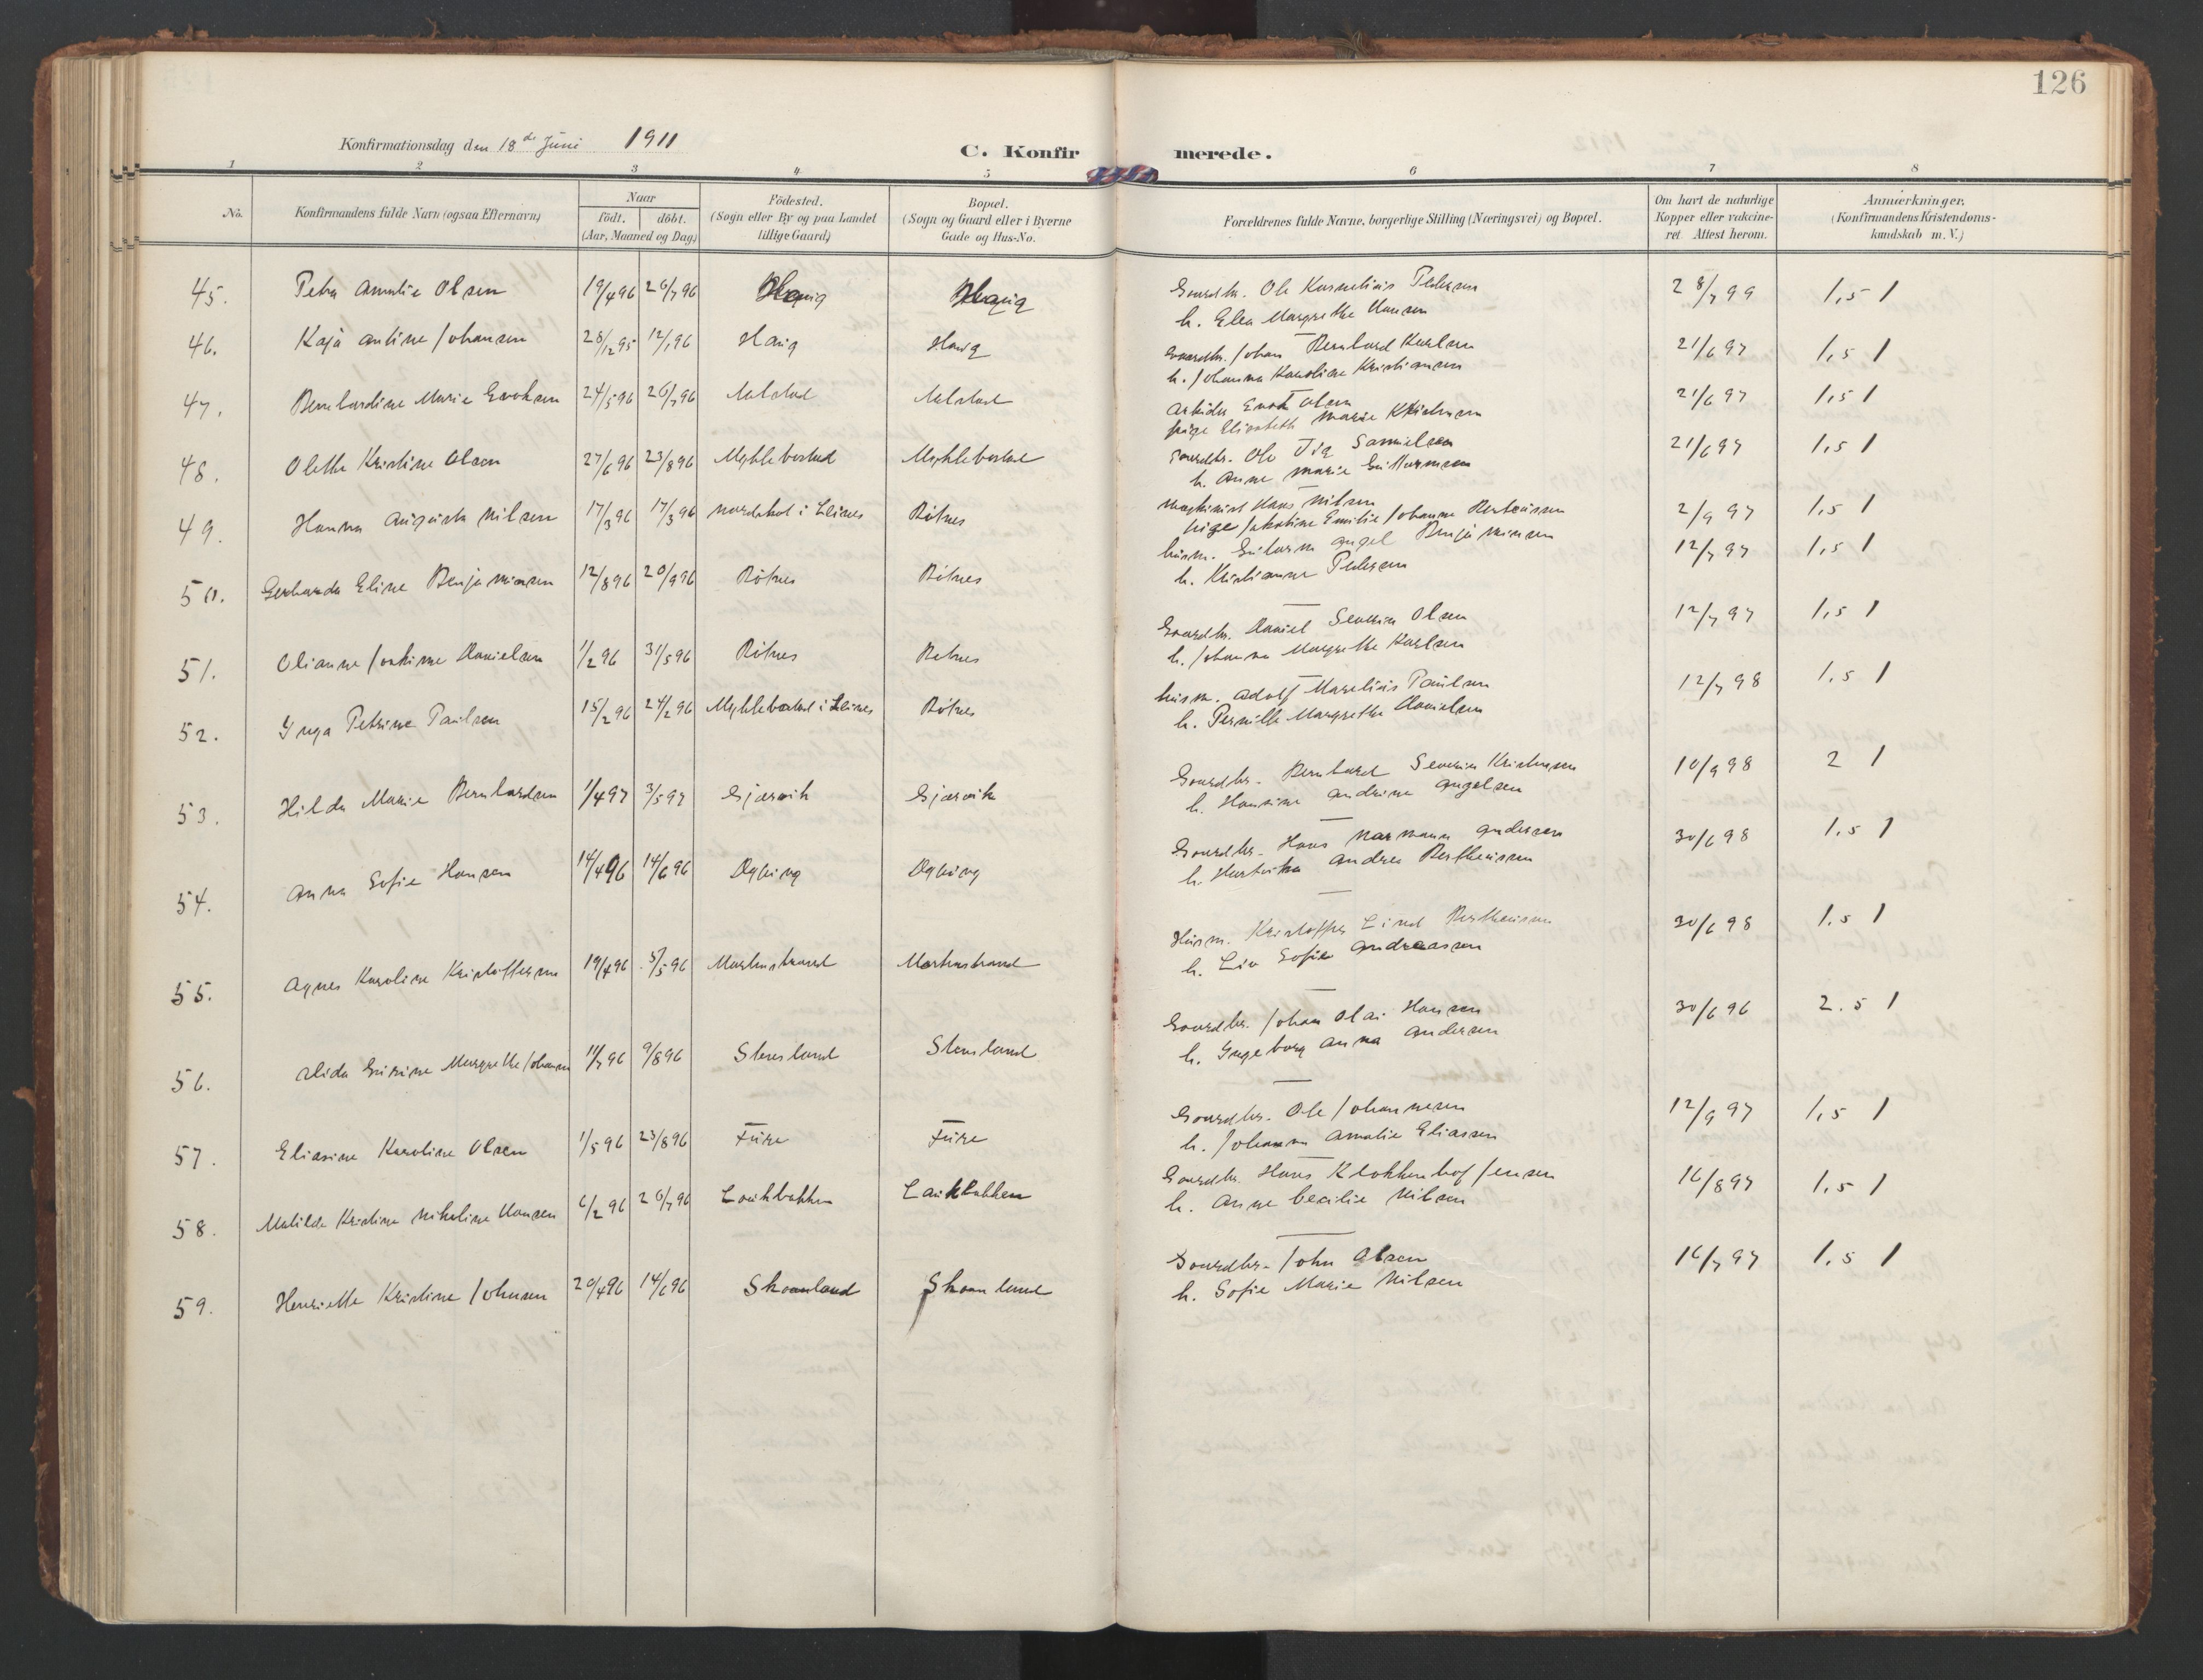 126
Konfirmationsdag den 18de Juni 1911
C. Konfirmerede.
1 2 3 4 5 6 7 8
No.
Konfirmandens fulde Navn (ogsaa Efternavn)
Naar
födt. döbt.
(Aar, Maaned og Dag)
Födested.
(Sogn eller By og paa Landet
tillige Gaard)
Bopæl.
(Sogn og Gaard eller i Byerne
Gade og Hus-No.
Forældrenes fulde Navne, borgerlige Stilling (Næringsvei) og Bopæl.
Om havt de naturlige
Kopper eller vakcine-
ret Attest herom.
Anmærkninger.
(Konfirmandens Kristendoms-
kundskab m. V.)
45. Petra Amalie Olsen 19/4 96 26/7 96 Haug Haug Gaardbr. Ole Kornelius Pedersen 28/7 99 1,5 1
h. Elen Margrethe Hansen
46. Kaja Antine Johansen 28/12 95 12/1 96 Haug Haug Gaardbr. Johan Bernhard Karlsen 21/6 97 1,5 1
h. Johanna Karoline Kristiansen
47. Bernhardine Marie Enoksen 24/5 96 26/7 96 Aalstad Aalstad Arbeider Enok Olsen 21/6 97 1,5 1
pige Elisabeth Marie Kristensen
48. Olette Kristine Olsen 27/6 96 23/8 96 Myklebostad Myklebostad Gaardbr. Ole Samuelsen 21/6 97 1,5 1
h. Anne Marie Guttormsen
49. Hanna Augusta Nilsen 17/3 96 17/3 96 Nordskot i Leines Bötnes Maskinist Hans Nilsen 2/9 97 1,5 1
pige Jakobine Emilie Johanne Berteussen
50. Gerharda Eline Benjaminsen 12/8 96 20/9 96 Bötnes Bötnes husm. Gutorm Angel Benjaminsen 12/7 97 1,5 1
h. Kristianne Pedersen
51. Olianne Joakime Danielsen 1/2 96 31/5 96 Bötnes Bötnes Gaardbr. Daniel Severin Olsen 12/7 97 1,5 1
h. Johanna Margrethe Karlsen
52. Inga Petrine Paulsen 15/2 96 24/2 96 Myklebostad i Leines Bötnes husm. Adolf Marelius Paulsen 12/7 98 1.5 1
h. Pernille Margrethe Danielsen
53. Hilda Marie Bernhardsen 1/4 97 3/5 97 Gjærvik Gjærvik Gaardbr. Bernhard Severin Kristensen 10/9 98 2 1
h. Hansine Andrine Angelsen
54. Anna Sofie Hansen 14/4 96 14/6 96 Dyping Dyping Gaardbr. Hans Normann Andersen 30/6 98 1.5 1
h. Andrea Bertheussen
55. Agnes Karoline Kristoffersen 19/4 96 3/5 96 Mortenstrand Mortenstrand Husm. Kristoffer Lind Bertheussen 30/6 98 1.5 1
h. Liv Sofie Andreassen
56. Alida Margrethe Johansen 11/7 96 9/8 96 Stensland Stensland Gaardbr. Johan Olai Hansen 30/6 96 2.5 1
h. Ingeborg Anna Andersen
57. Eliasine Karoline Olsen 1/5 96 23/8 96 Füre Füre Gaardbr. Ole Johannesen 12/9 97 1,5 1
h. Johanna Amalie Eliassen
58. Matilde Kristine Nikoline Hansen 6/2 96 26/7 96 Laukbakken Laukbakken Gaardbr. Hans Klokkenhof Jensen 16/8 97 1,5 1
h. Anne Cecilie Nilsen
59. Henriette Kristine Johnsen 20/4 96 14/6 96 Skaanland Skaanland Gaardbr. John Olsen 16/7 97 1.5 1
h. Sofie Marie Nilsen